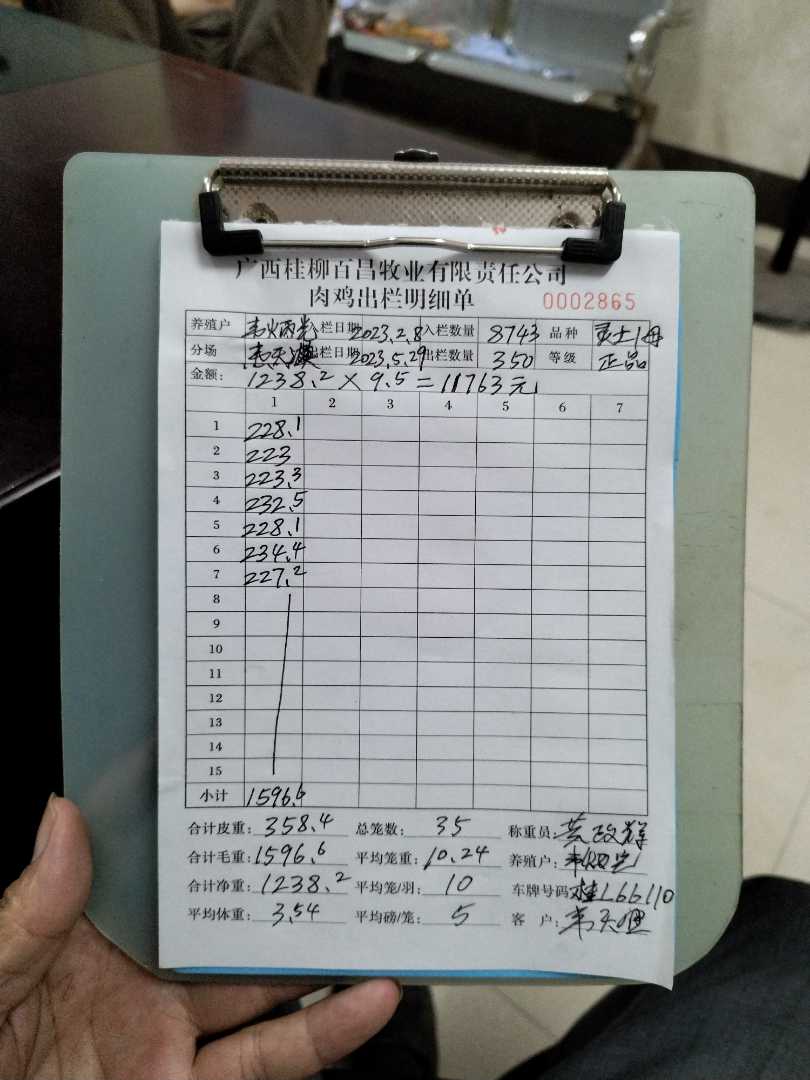 广西桂柳百昌牧业有限责任公司
肉鸡出栏明细单 0002865
养殖户 韦炳光 入栏日期 2023.2.8 入栏数量 8743 品种
分场 出栏日期 2023.5.29 出栏数量 350 等级 正品
金额: 1238.2 × 9.5 = 11763元
1 2 3 4 5 6 7
1 228.1
2 223
3 223.3
4 232.5
5 228.1
6 234.4
7 227.2
8
9
10
11
12
13
14
15
小计 1596.6
合计皮重: 358.4 总笼数: 35 称重员: 黄政辉
合计毛重: 1596.6 平均笼重: 10.24 养殖户: 韦炳光
合计净重: 1238.2 平均笼/羽: 10 车牌号码: 桂L66110
平均体重: 3.54 平均磅/笼: 5 客户: